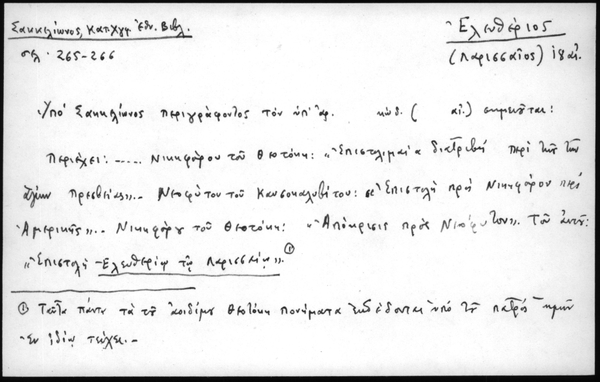 Σακκελίωνος, Κατ. Χγφ. Ἐθν. Βιβλ.
σελ. 265-266
Ἐλευθέριος
(Λαρισσαῖος) ιηʹ αἰ.
Ὑπό Σακκελίωνος περιγράφοντος τὸν ὑπ' ἀρ. κώδ. ( αἰ.) σημειοῦται:
Περιέχει: ..... Νικηφόρου τοῦ Θεοτόκη: «Ἐπιστολιμαία διατριβὴ περὶ τῆς τῶν
ἁγίων πρεσβείας».. Νεοφύτου τοῦ Καυσοκαλυβίτου: «Ἐπιστολὴ πρὸς Νικηφόρον περὶ
Ἀμερικῆς».. Νικηφόρου τοῦ Θεοτόκη: «Ἀπόκρισις πρὸς Νεόφυτον». Τοῦ αὐτοῦ:
«Ἐπιστολὴ Ἐλευθερίῳ τῷ Λαρισσαίῳ».①
① Ταῦτα πάντα τὰ τοῦ ἀοιδίμου Θεοτόκη πονήματα ἐκδέδονται ὑπὸ τοῦ πατρός ἡμῶν
ἐν ἰδίῳ τεύχει.-